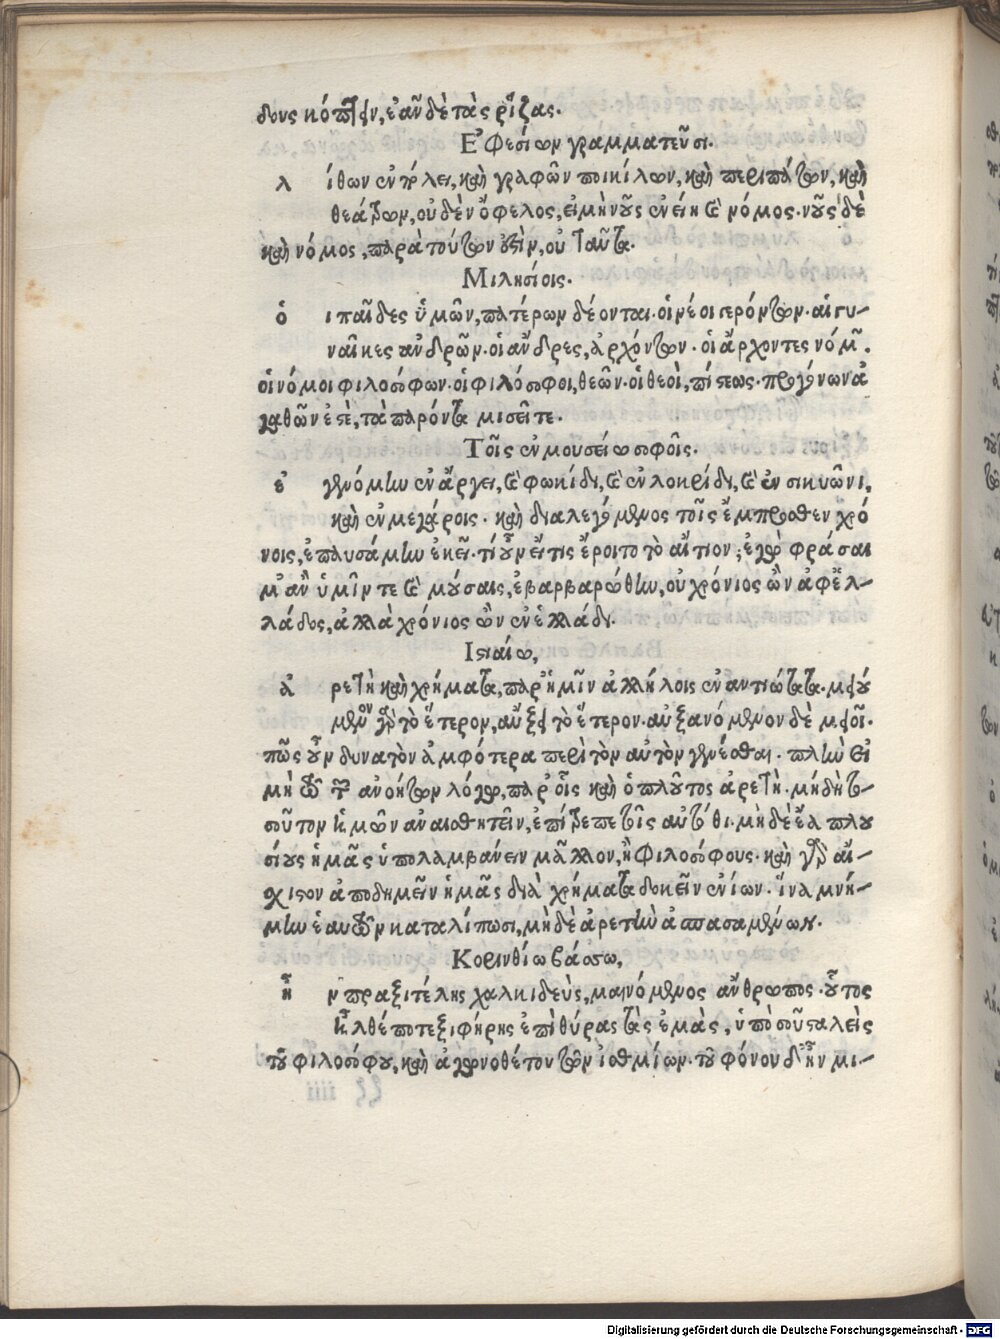 δους κόπτειν, ἐᾶν δὲ τὰς ῥίζας.
Ἐφεσίων γραμματεῦσι.
λίθων ἐν πόλει, καὶ γραφῶν ποικίλων, καὶ περιπάτων, καὶ
θεάτρων, οὐδὲν ὄφελος, εἰ μὴ νοῦς ἐνείη καὶ νόμος. νοῦς δὲ
καὶ νόμος, παρὰ τούτων ἐστὶν, οὐ ταῦτα.
Μιλησίοις.
οἱ παῖδες ὑμῶν, πατέρων δέονται. οἱ νέοι γερόντων. αἱ γυ-
ναῖκες ἀνδρῶν. οἱ ἄνδρες, ἀρχόντων. οἱ ἄρχοντες νόμων.
οἱ νόμοι φιλοσόφων. οἱ φιλόσοφοι, θεῶν. οἱ θεοὶ, πίστεως. προγόνων ἀ
γαθῶν ἐστὲ, τὰ παρόντα μισεῖτε.
Τοῖς ἐν μουσείω σοφοῖς.
ἐγενόμην ἐν ἄργει, καὶ φωκίδι, καὶ ἐν λοκρίδι, καὶ ἐν σικυῶνι,
καὶ ἐν μεγάροις. καὶ διαλεγόμενος τοῖς ἔμπροσθεν χρό
νοις, ἐπαυσάμην ἐκεῖ. τί οὖν εἴ τις ἔροιτο τὸ αἴτιον, ἐγὼ φράσαι
μ' ἂν ὑμῖν τε καὶ μούσαις, ἐβαρβαρώθην, οὐ χρόνιος ὢν ἀφ' ἑλ-
λάδος, ἀλλὰ χρόνιος ὢν ἐν ἑλλάδι.
Ἰσιαίω,
ἀρετὴ καὶ χρήματα, παρ' ἡμῖν ἀλλήλοις ἐναντιώτατα. μειού
μενον γὰρ τὸ ἕτερον, αὔξει τὸ ἕτερον. αὐξανόμενον δὲ μειοῖ.
πῶς οὖν δυνατὸν ἀμφότερα περὶ τὸν αὐτὸν γενέσθαι. πλὴν εἰ
μὴ τῶ τῶν ἀνοήτων λόγω, παρ' οἷς καὶ ὁ πλοῦτος ἀρετή. μὴ δὴ το-
σοῦτον ἡμῶν ἀναισθητεῖν, ἐπίτρεπε τοῖς αὐτόθι. μηδὲ ἔα πλου
σίους ἡμᾶς ὑπολαμβάνειν μᾶλλον, ἢ φιλοσόφους. καὶ γὰρ αἴ-
σχιστον ἀποδημεῖν ἡμᾶς διὰ χρήματα δοκεῖν ἐνίων. ἵνα μνή-
μην ἑαυτῶν καταλίπωσι, μηδὲ ἀρετὴν ἀσπασαμένων.
Κορινθίω βάσσω,
ἦν πραξιτέλης χαλκιδεὺς, μαινόμενος ἄνθρωπος. οὗτος
ἦλθέ ποτε ξιφήρης ἐπὶ θύρας τὰς ἐμὰς, ὑπὸ σοῦ σταλεὶς
τοῦ φιλοσόφου, καὶ ἀγωνοθέτου τῶν ἰσθμίων. τοῦ φόνου δ' ἦν μι-